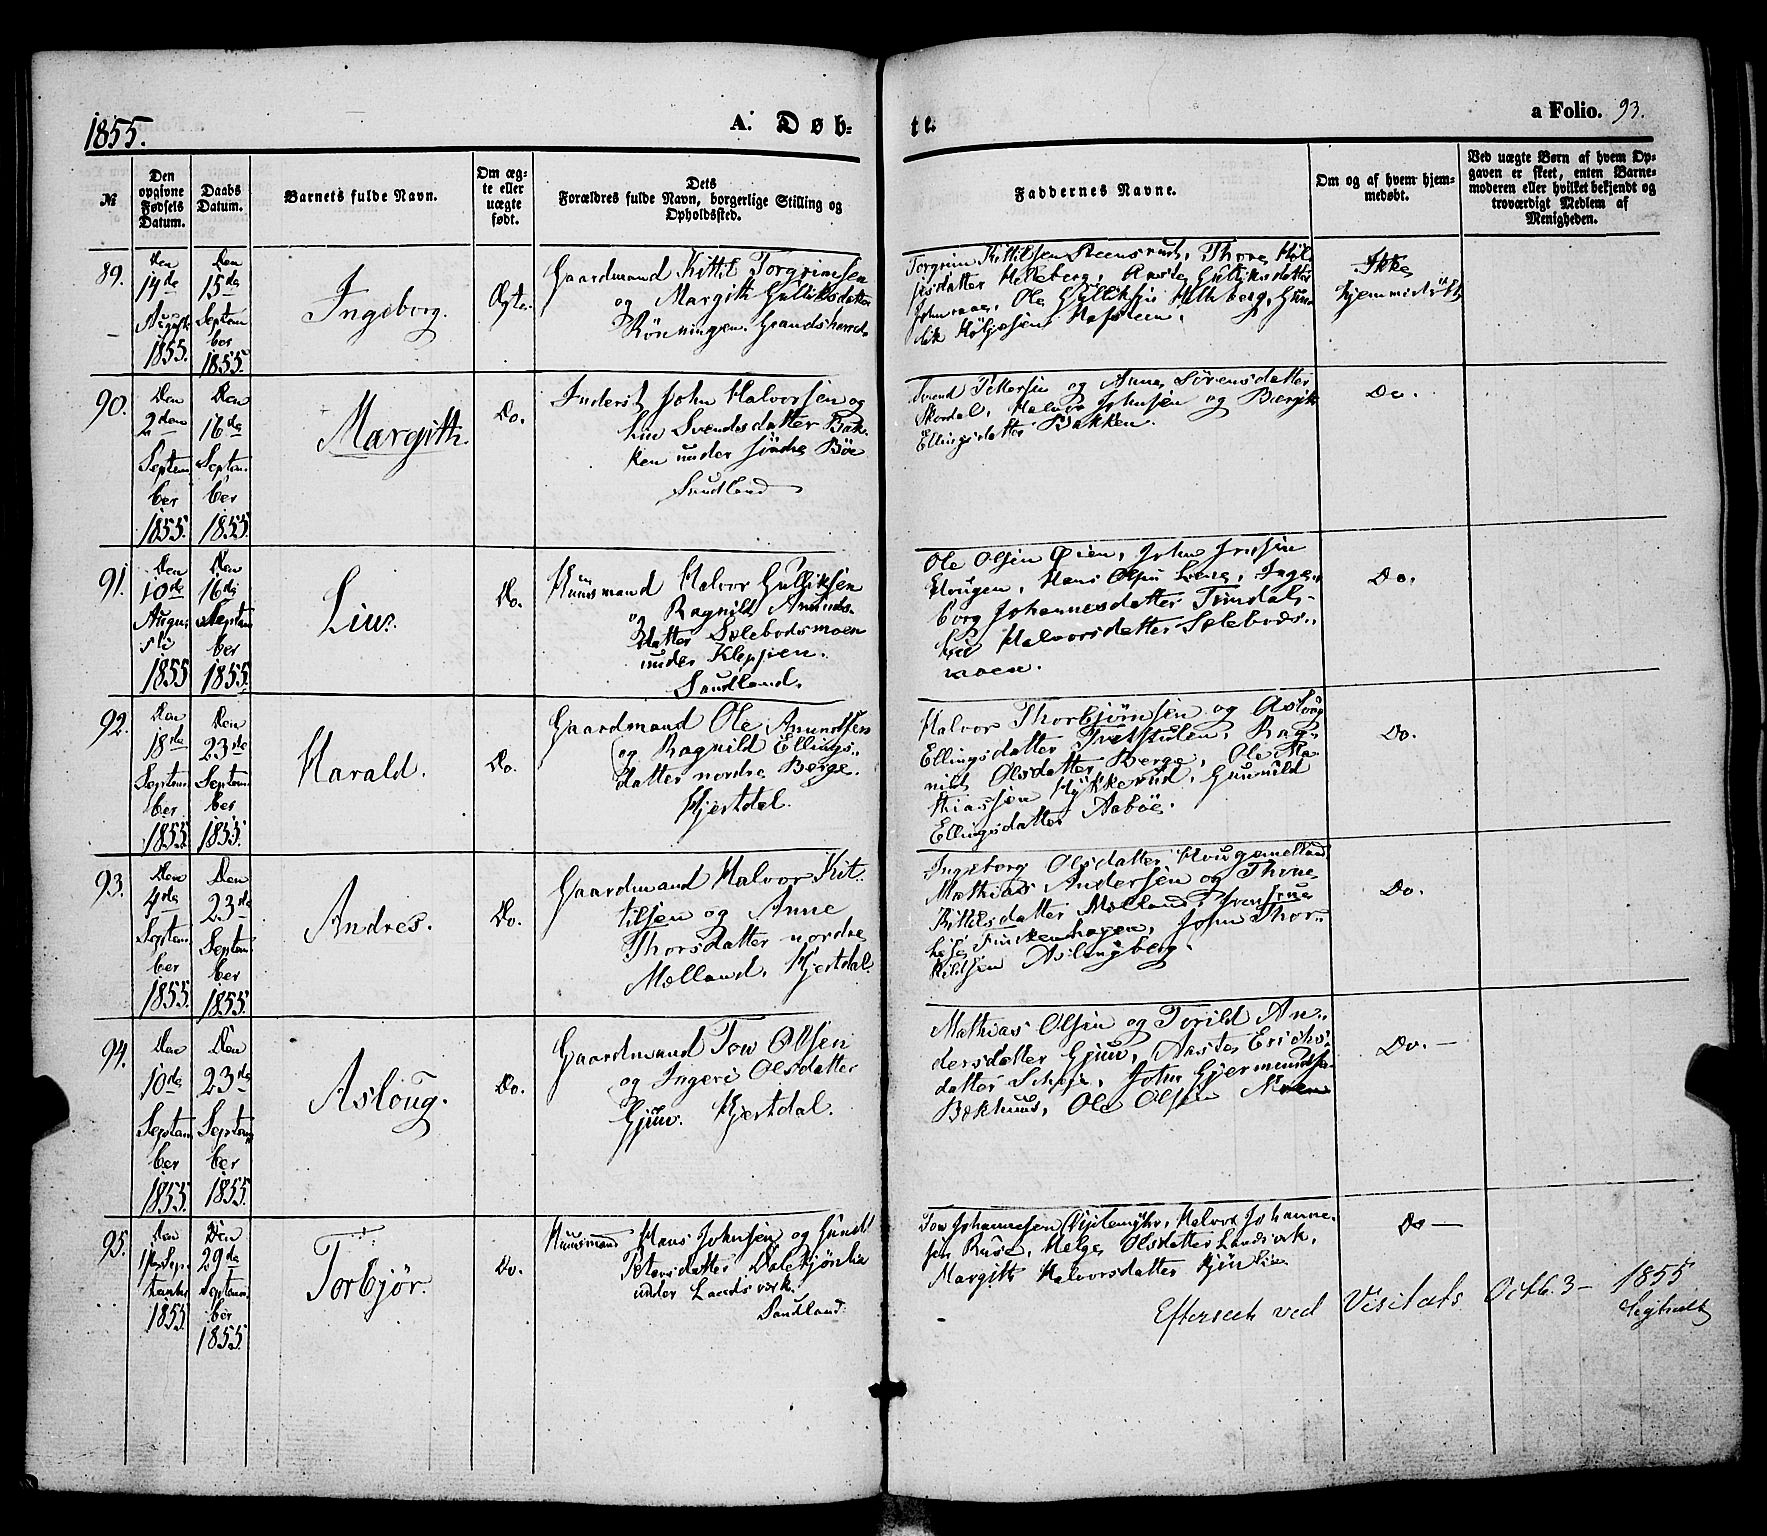 1855.
A. Døb-
te.
a Folio. 93.
№
Den opgivne Fødsels Datum.
Daabs Datum.
Barnets fulde Navn.
Om ægte eller uægte født.
Dets Forældres fulde Navn, borgerlige Stilling og Opholdssted.
Faddernes Navne.
Om og af hvem hjemmedøbt.
Ved uægte Børn af hvem Opgaven er skeet, enten Barnemoderen eller hvilket bekjendt og troværdigt Medlem af Menigheden.
89.
Den
14de
August
1855.
Den
15de
Septem
ber
1855.
Ingeborg.
Ægte.
Gaardmand Kittil Torgrimsen
og Margith Gulliksdatter
Rönningen. Grandsherred.
Torgrim Kittilsen Steensrud, Thore Høl
jesdatter Helleberg, Gulliksdatter
Ole Gulliksen Helleberg, Gun
Høljesen
Ikke
hjemmedöbt
90.
Den
2den
Septem
ber
1855.
Den
16de
Septem.
ber
1855.
Margith.
Do.
Inderst John Halvorsen og
Liv Svendsdatter Bak-
ken under søndre Böe
Saudland
Svend Pettersen og Anne Sörensdatter
Skordal, Halvor Johnsen og Bergit
Ellingsdatter Bakken.
Do.
91.
Den
10de
Augu
sti
1855
Den
16de
Septem
ber
1855.
Liv.
Do.
Huusmand Halvor Gulliksen
og Ragnild Amunds-
datter Selebodsmoen
under Kleppen.
Saudland.
Ole Olsen Øien, John Jensen
Hans Olsen Inge-
borg Johannesdatter
Liv Halvorsdatter Selebods-
moen.
Do.
92.
Den
18de
Septem
ber
1855.
Den
23de
Septem
ber
1855.
Harald.
Do.
Gaardmand Ole Amundsen
og Ragnild Ellings-
datter nordre Berge.
Hjertdal.
Halvor Thorbjørnsen og Aslaug
Ellingsdatter Tvetstulen, Rag-
nild Olsdatter Berge, Ole Ma-
thiassen Hykkerud, Gunnild
Ellingsdatter Aaböe.
Do.
93.
Den
4de
Septem
ber
1855.
Den
23de
Septem
ber
1855.
Andres.
Do.
Gaardmand Halvor Kit-
tilsen og Anne
Thorsdatter nordre
Mælland. Hjertdal.
Ingeborg Olsdatter Haugemelland,
Mathias Andersen og Thone
Kittelsdatter Mælland, Jomfrue
Finckenhagen, John Thor-
kildsen Aslangberg.
Do.
94.
Den
10de
Septem
ber
1855.
Den
23de
Septem
ber
1855.
Aslöug.
Do.
Gaardmand Tov Olsen
og Ingeri Olsdatter
Gjuv. Hjertdal.
Mathias Olsen og Torild An-
dersdatter Gjuv, Aaste Erichs-
datter John Gjermundsen
Bekhuus, Ole Olsen Moen
Do. —
95.
Den
Sep-
tember
1855
Den
29de
Septem
ber
1855.
Torbjør.
Do.
Huusmand Hans Johnsen og Gunild
Petersdatter
under Landsverk
Saudland.
Tov Johannesen Halvor Johanne-
sen Ruse, Helge Olsdatter Landsverk,
Margith Halvorsdatter
Do —
Efterseet ved Visitats Octb. 3 - 1855